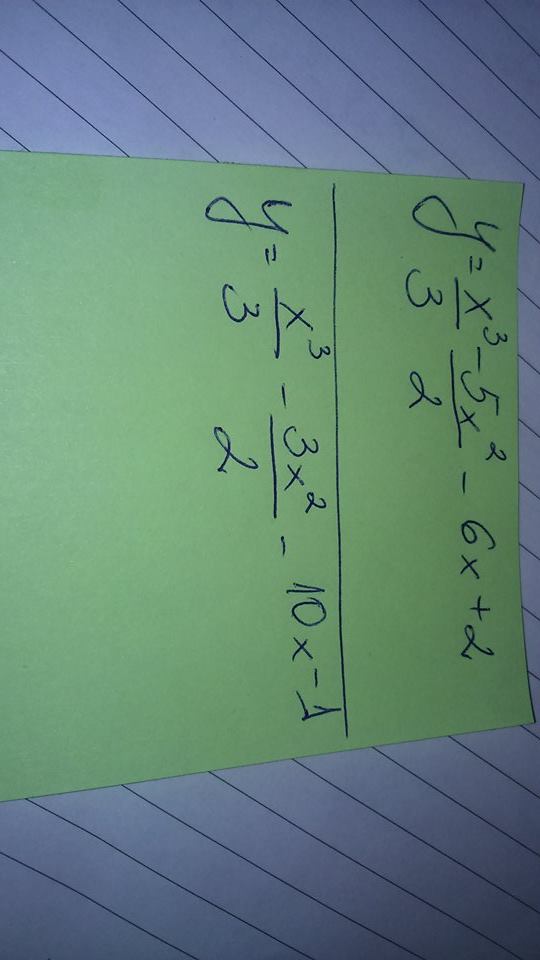 y = x³/3 - 5x²/2 - 6x + 2
y = x³/3 - 3x²/2 - 10x - 1